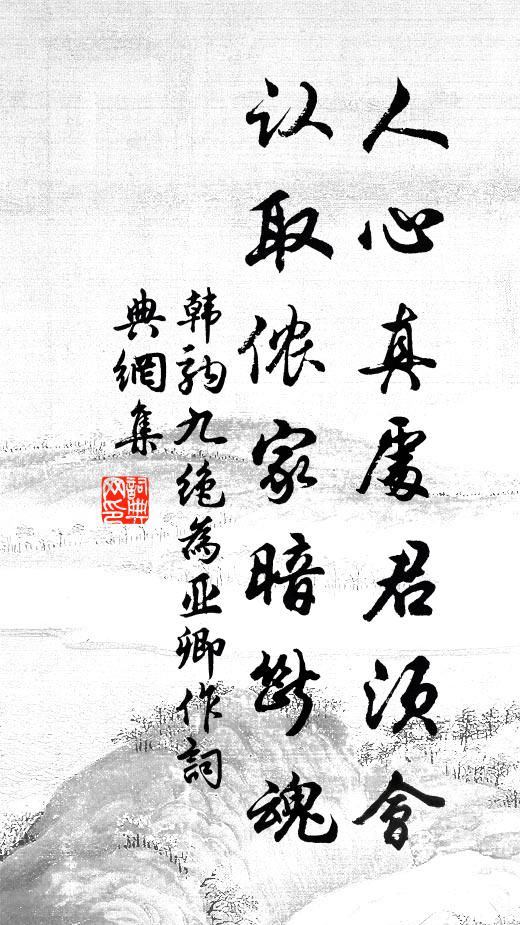 人心真處君須會
认取侬家暗断魂
韩驹九絕為亚卿作詞
典網集
詞典
网印